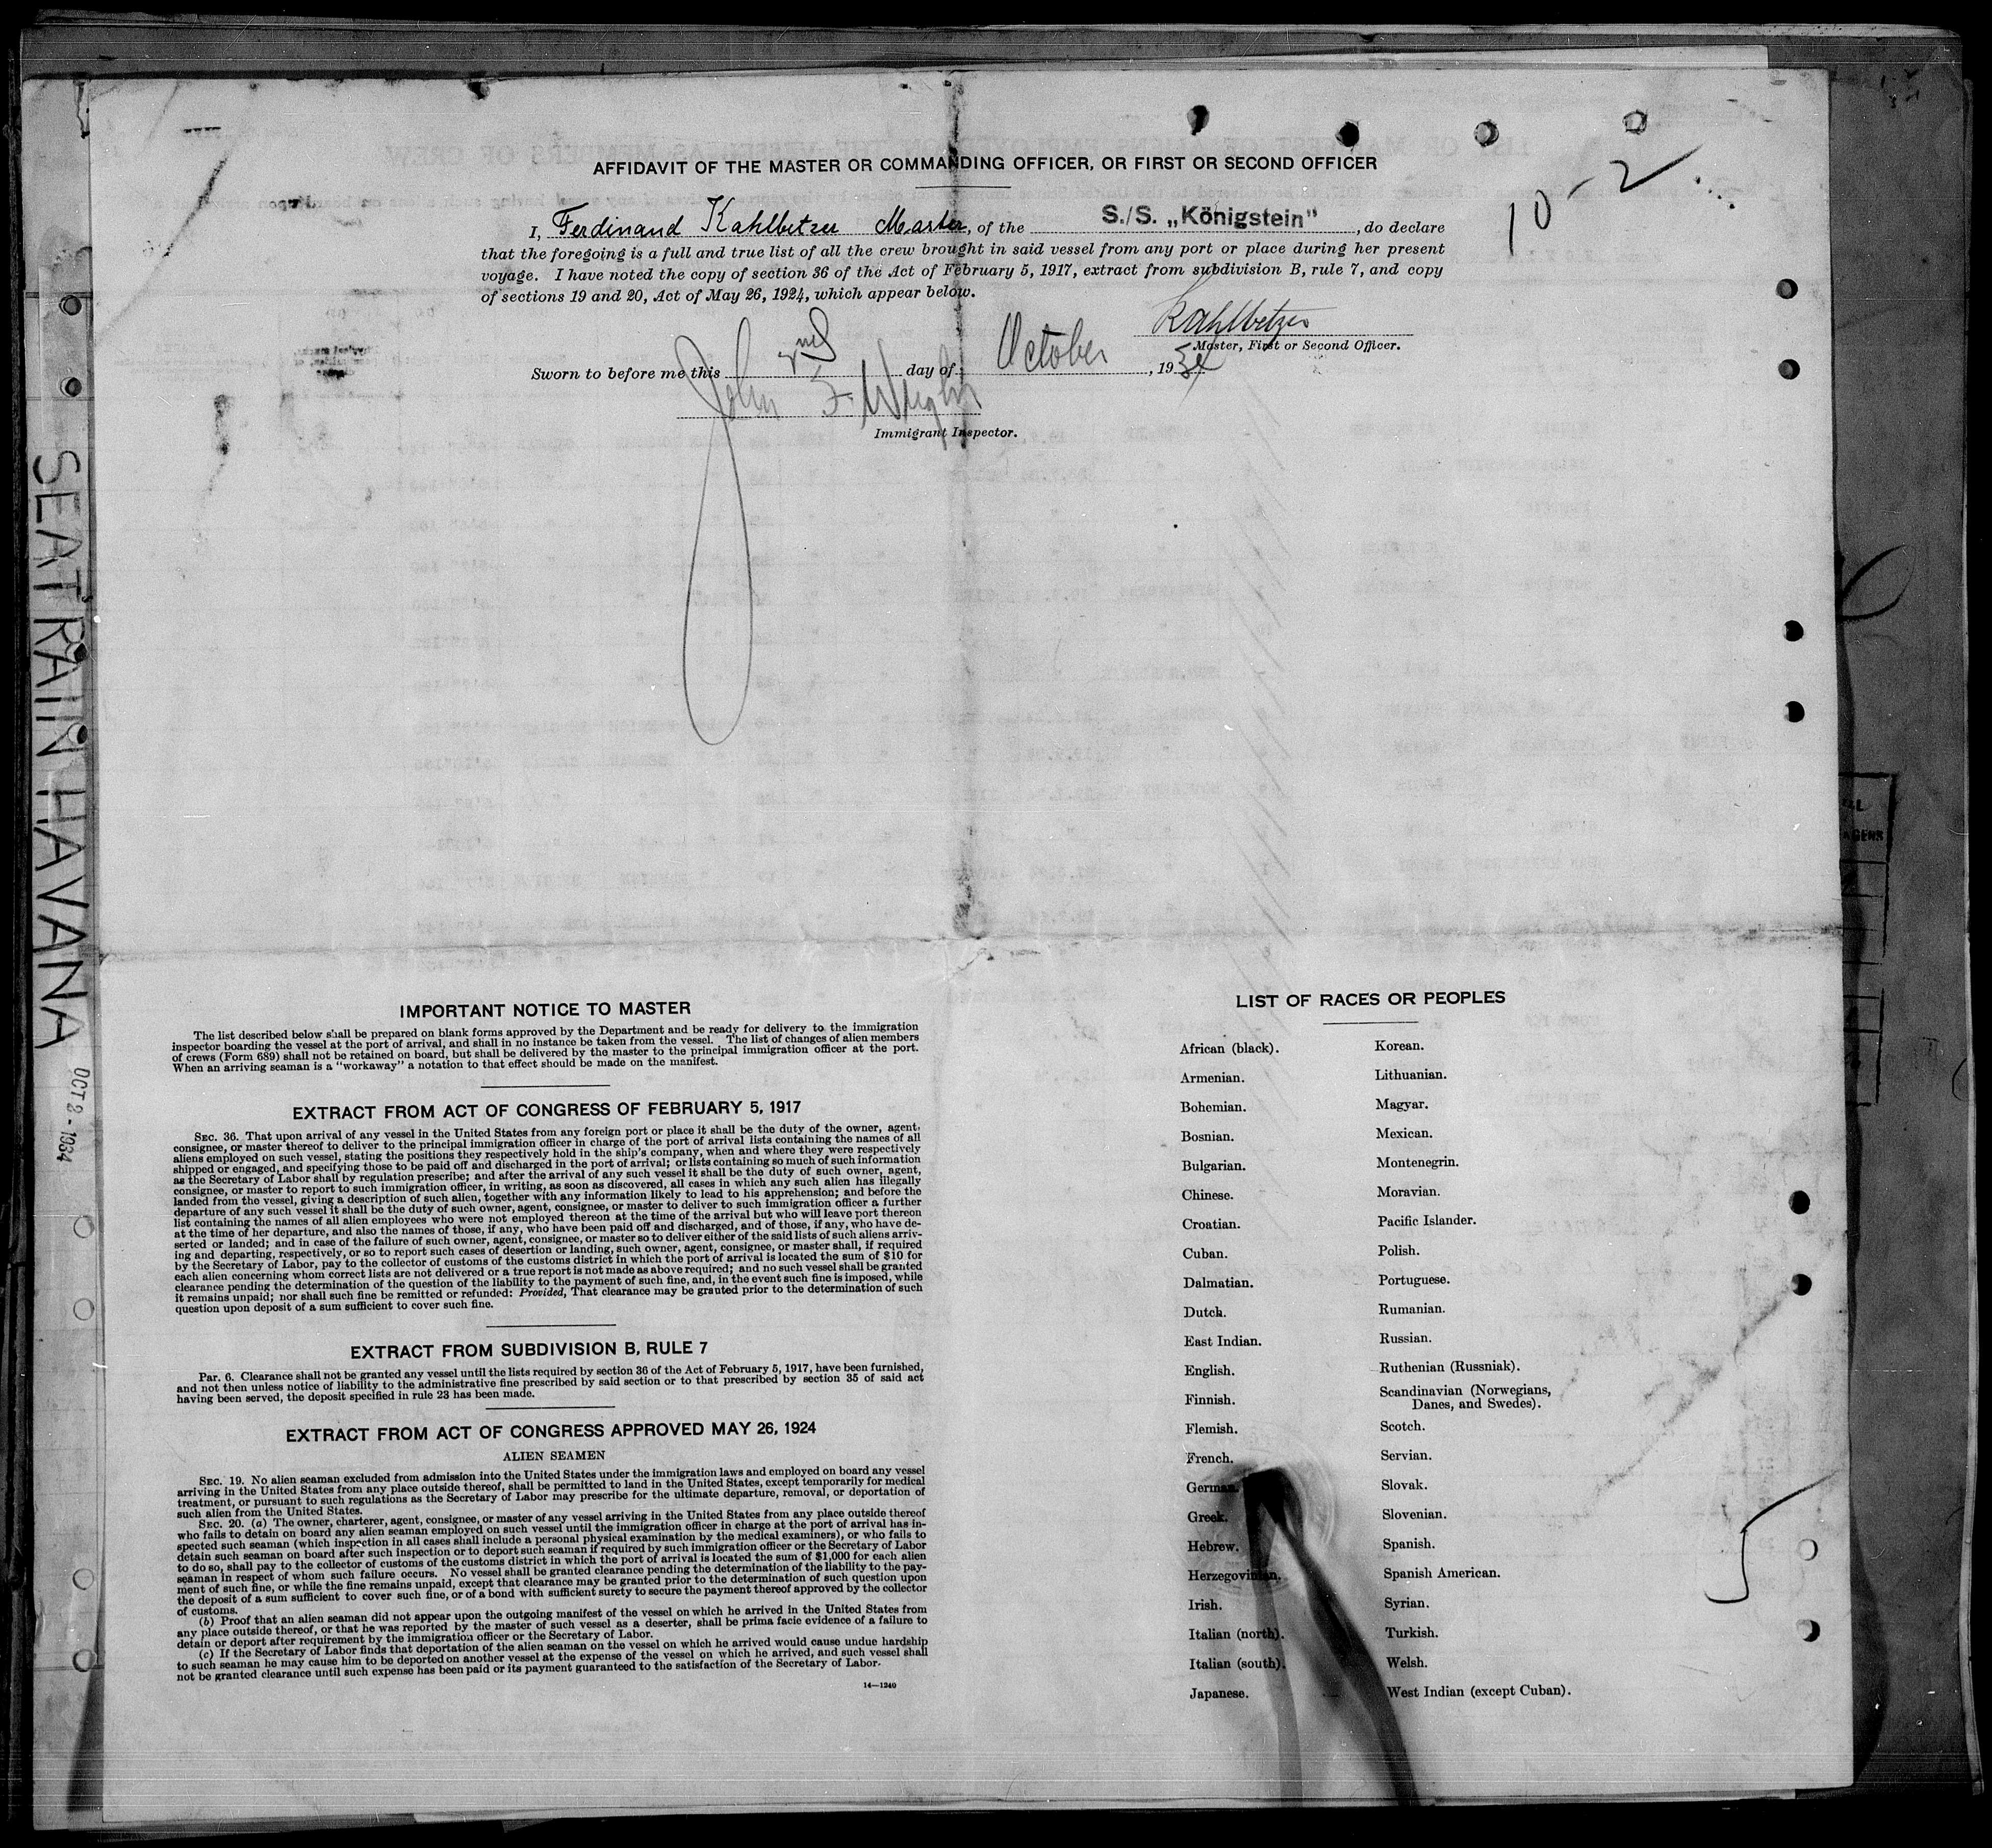 AFFIDAVIT OF THE MASTER OR COMMANDING OFFICER, OR FIRST OR SECOND OFFICER
10-2
I, Ferdinand Kahlbetzer Master, of the S./S. „Königstein", do declare
that the foregoing is a full and true list of all the crew brought in said vessel from any port or place during her present
voyage. I have noted the copy of section 36 of the Act of February 5, 1917, extract from subdivision B, rule 7, and copy
of sections 19 and 20, Act of May 26, 1924, which appear below.
Kahlbetzer
Master, First or Second Officer.
Sworn to before me this 2nd day of October, 1934
John F. Wright
Immigrant Inspector.
SEATRAIN HAVANA OCT 2 - 1934
IMPORTANT NOTICE TO MASTER
The list described below shall be prepared on blank forms approved by the Department and be ready for delivery to the immigration
inspector boarding the vessel at the port of arrival, and shall in no instance be taken from the vessel. The list of changes of alien members
of crews (Form 689) shall not be retained on board, but shall be delivered by the master to the principal immigration officer at the port.
When an arriving seaman is a "workaway" a notation to that effect should be made on the manifest.
EXTRACT FROM ACT OF CONGRESS OF FEBRUARY 5, 1917
SEC. 36. That upon arrival of any vessel in the United States from any foreign port or place it shall be the duty of the owner, agent,
consignee, or master thereof to deliver to the principal immigration officer in charge of the port of arrival lists containing the names of all
aliens employed on such vessel, stating the positions they respectively hold in the ship's company, when and where they were respectively
shipped or engaged, and specifying those to be paid off and discharged in the port of arrival; or lists containing so much of such information
as the Secretary of Labor shall by regulation prescribe; and after the arrival of any such vessel it shall be the duty of such owner, agent,
consignee, or master to report to such immigration officer, in writing, as soon as discovered, all cases in which any such alien has illegally
landed from the vessel, giving a description of such alien, together with any information likely to lead to his apprehension; and before the
departure of any such vessel it shall be the duty of such owner, agent, consignee, or master to deliver to such immigration officer a further
list containing the names of all alien employees who were not employed thereon at the time of the arrival but who will leave port thereon
at the time of her departure, and also the names of those, if any, who have been paid off and discharged, and of those, if any, who have de-
serted or landed; and in case of the failure of such owner, agent, consignee, or master so to deliver either of the said lists of such aliens arriv-
ing and departing, respectively, or so to report such cases of desertion or landing, such owner, agent, consignee, or master shall, if required
by the Secretary of Labor, pay to the collector of customs of the customs district in which the port of arrival is located the sum of $10 for
each alien concerning whom correct lists are not delivered or a true report is not made as above required; and no such vessel shall be granted
clearance pending the determination of the question of the liability to the payment of such fine, and, in the event such fine is imposed, while
it remains unpaid; nor shall such fine be remitted or refunded: Provided, That clearance may be granted prior to the determination of such
question upon deposit of a sum sufficient to cover such fine.
EXTRACT FROM SUBDIVISION B, RULE 7
Par. 6. Clearance shall not be granted any vessel until the lists required by section 36 of the Act of February 5, 1917, have been furnished,
and not then unless notice of liability to the administrative fine prescribed by said section or to that prescribed by section 35 of said act
having been served, the deposit specified in rule 23 has been made.
EXTRACT FROM ACT OF CONGRESS APPROVED MAY 26, 1924
ALIEN SEAMEN
SEC. 19. No alien seaman excluded from admission into the United States under the immigration laws and employed on board any vessel
arriving in the United States from any place outside thereof, shall be permitted to land in the United States, except temporarily for medical
treatment, or pursuant to such regulations as the Secretary of Labor may prescribe for the ultimate departure, removal, or deportation of
such alien from the United States.
SEC. 20. (a) The owner, charterer, agent, consignee, or master of any vessel arriving in the United States from any place outside thereof
who fails to detain on board any alien seaman employed on such vessel until the immigration officer in charge at the port of arrival has in-
spected such seaman (which inspection in all cases shall include a personal physical examination by the medical examiners), or who fails to
detain such seaman on board after such inspection or to deport such seaman if required by such immigration officer or the Secretary of Labor
to do so, shall pay to the collector of customs of the customs district in which the port of arrival is located the sum of $1,000 for each alien
seaman in respect of whom such failure occurs. No vessel shall be granted clearance pending the determination of the liability to the pay-
ment of such fine, or while the fine remains unpaid, except that clearance may be granted prior to the determination of such question upon
the deposit of a sum sufficient to cover such fine, or of a bond with sufficient surety to secure the payment thereof approved by the collector
of customs.
(b) Proof that an alien seaman did not appear upon the outgoing manifest of the vessel on which he arrived in the United States from
any place outside thereof, or that he was reported by the master of such vessel as a deserter, shall be prima facie evidence of a failure to
detain or deport after requirement by the immigration officer or the Secretary of Labor.
(c) If the Secretary of Labor finds that deportation of the alien seaman on the vessel on which he arrived would cause undue hardship
to such seaman he may cause him to be deported on another vessel at the expense of the vessel on which he arrived, and such vessel shall
not be granted clearance until such expense has been paid or its payment guaranteed to the satisfaction of the Secretary of Labor.
14—1240
LIST OF RACES OR PEOPLES
African (black).
Armenian.
Bohemian.
Bosnian.
Bulgarian.
Chinese.
Croatian.
Cuban.
Dalmatian.
Dutch.
East Indian.
English.
Finnish.
Flemish.
French.
German.
Greek.
Hebrew.
Herzegovinian.
Irish.
Italian (north).
Italian (south).
Japanese.
Korean.
Lithuanian.
Magyar.
Mexican.
Montenegrin.
Moravian.
Pacific Islander.
Polish.
Portuguese.
Rumanian.
Russian.
Ruthenian (Russniak).
Scandinavian (Norwegians,
Danes, and Swedes).
Scotch.
Servian.
Slovak.
Slovenian.
Spanish.
Spanish American.
Syrian.
Turkish.
Welsh.
West Indian (except Cuban).
5